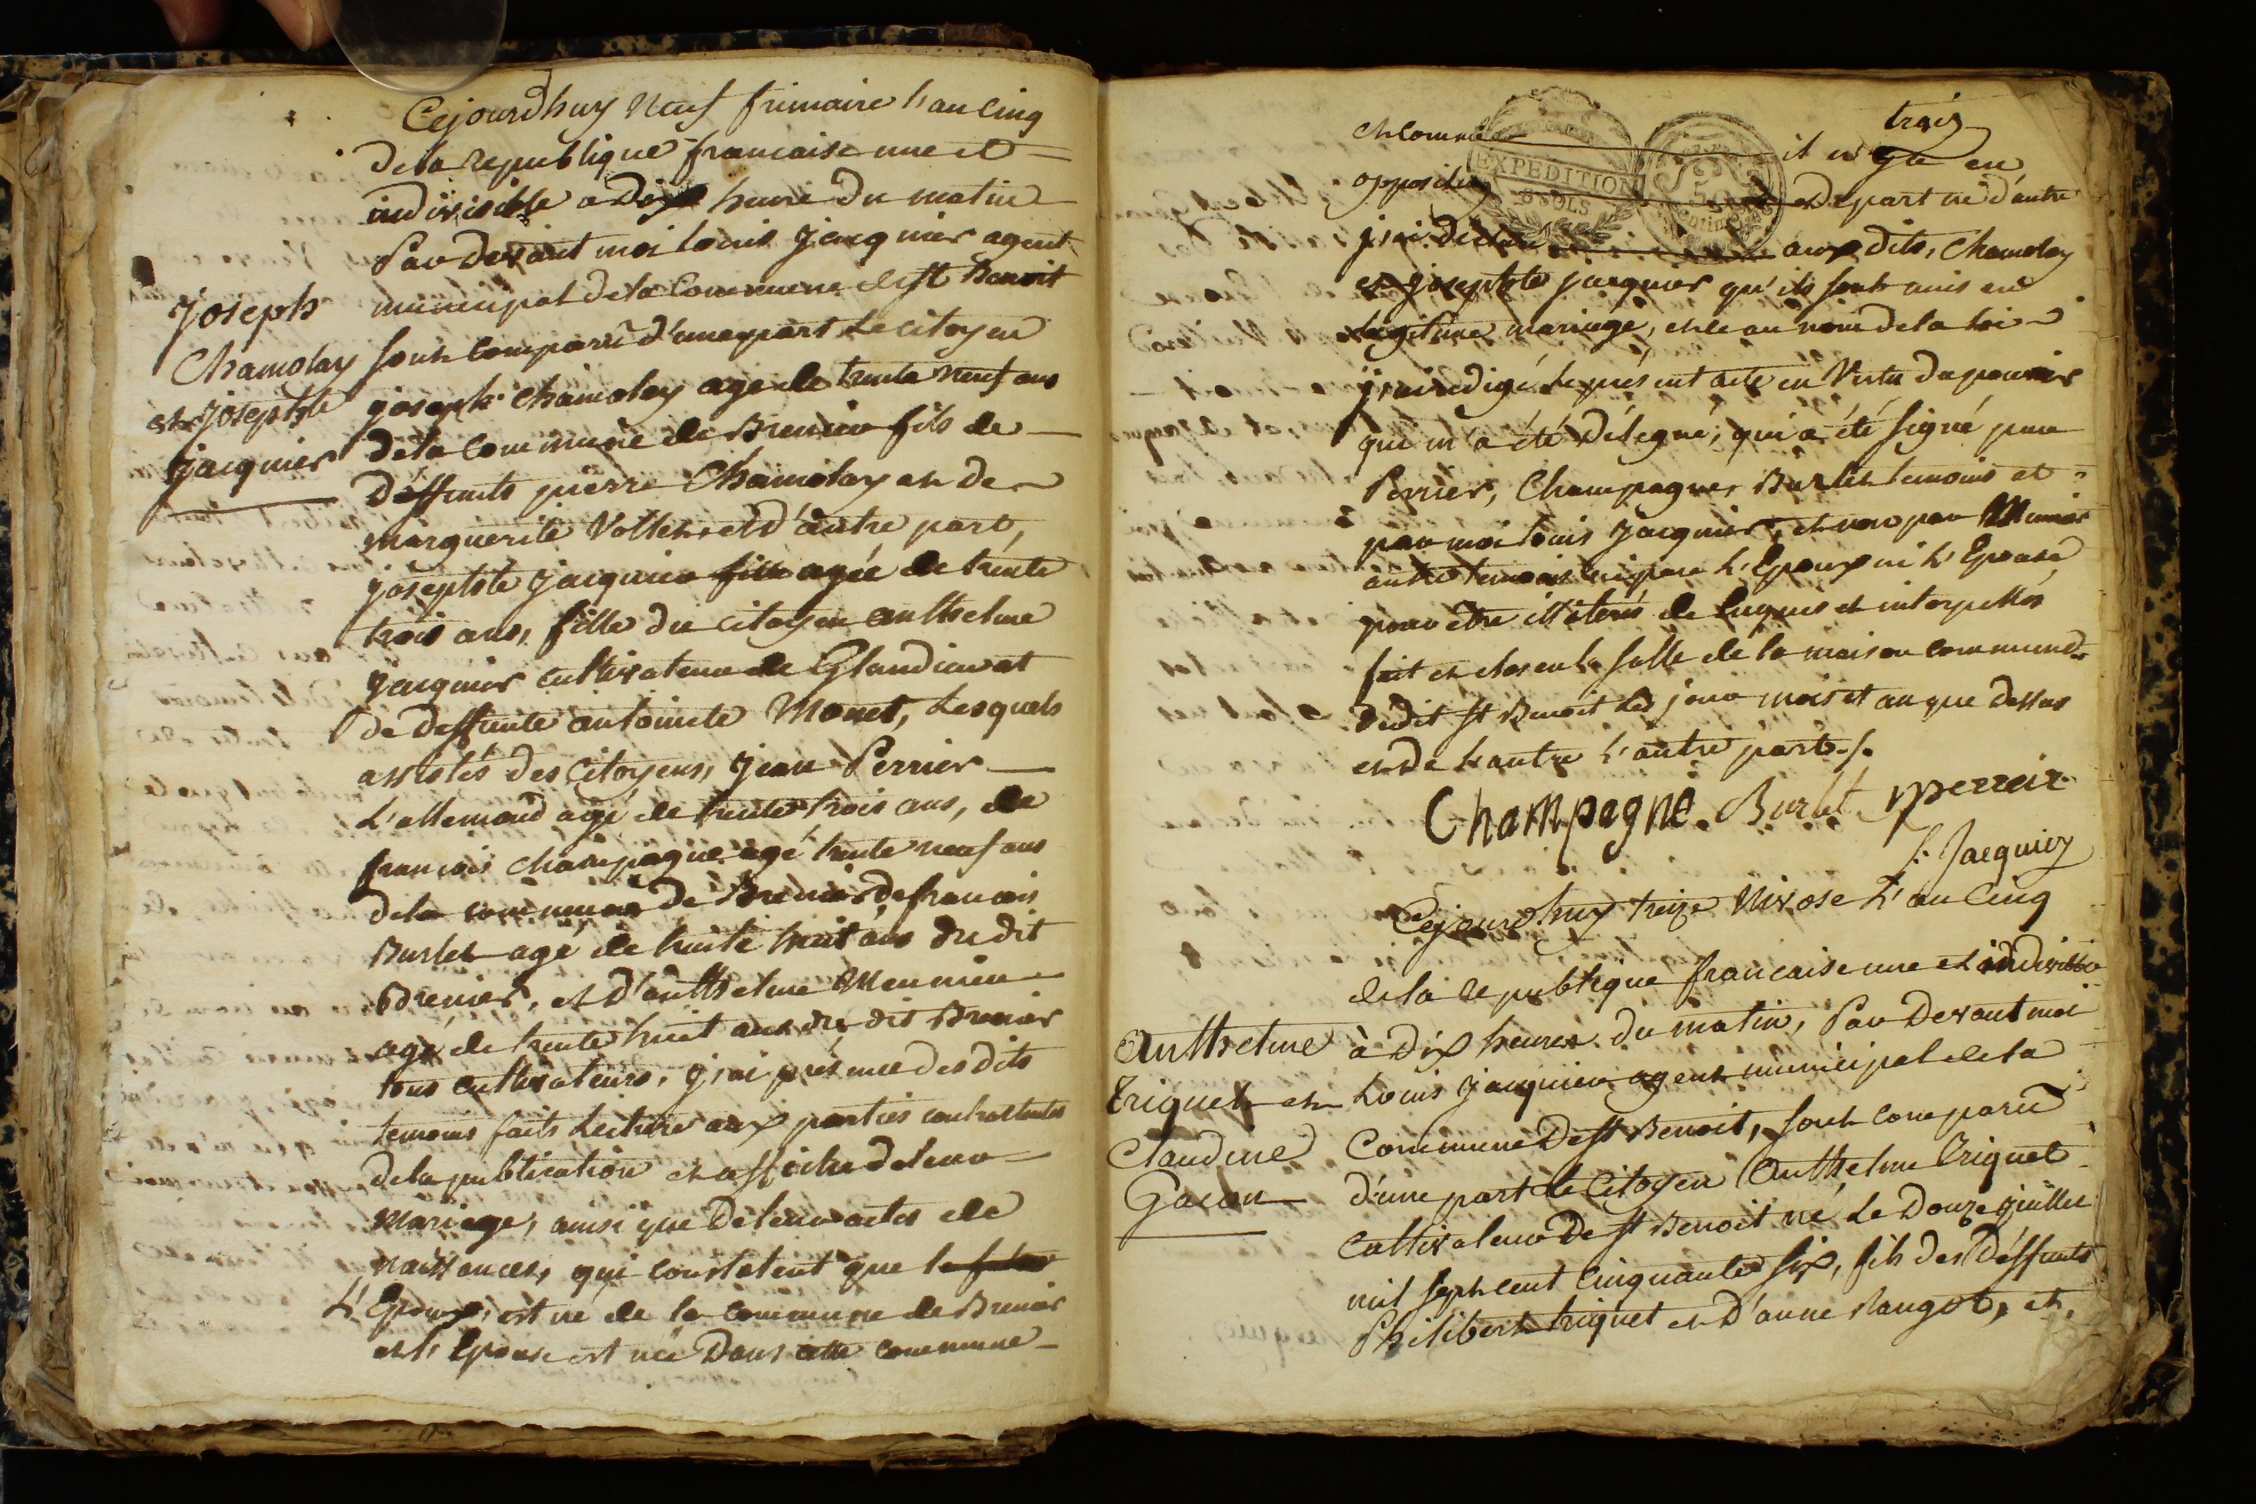 Cejourdhuy neuf frimaire l'an Cinq
dela republique francaise une et
indivisible a Dix heure du matin
Par devant moi Louis Jacquier agent
municipal dela Commune de St Benoit
Joseph
Chamolay
et Josephte
Jacquier
sont comparû d'une part Le citoyen
joseph Chamolay age de trente neuf ans
dela commune de Brenier fils de
deffunts pierre Chamolay et de
marguerite Vollet et d'autre part,
josephte jacquier fille agée de trente
trois ans, fille du citoyen anthelme
jacquier cultivateur de Glandieu et
de deffunte antoinete Monet, Lesquels
assistés des Citoyens, jean Perrier
L'allemand agé de trente trois ans, de
francois Champagne agé trente neuf ans
dela commune de Brenier, de francois
Burlet agé de trente huit ans du dit
Brenier, et d'anthelme Meunier
agé de trente huit ans du dit Brenier
tous cultivateurs, j'ai présence des dits
temoins faits Lecture aux parties contractantes
dela publication et affiche de leur
Mariage, ainsi que de leurs actes de
naissances, qui constatent que le futur
L'Epoux, est né de la commune de Brenier
et L'Epouse est née Dans cette commune
trois
et comme il
en
opposition et Depart ni d'autre
j'ai déclaré aux dits, Chamolay
et josephte jacquier qu'ils sont unis en
Légitime mariage, et le au nom dela Loi
j'ai redigé Le présent acte en Vertu du pouvoir
qui m'a été délegué, qui a été signé par
Perrier, Champagne, Burlet temoins et
par moi Louis jacquier, et non par Meunier
autre temoins ni par L'Epoux ni L'Epouse
pour être illiterés de Enquis et interpellés
fait et clos en la salle de la maison commune
dudit St Benoit Les jour mois et an que dessus
et De L'autre L'autre part ./.
Champagne. Burlet perreir
L. Jacquier
Cejourdhuy treize Nivose L'an Cinq
dela republique francaise une et indivisible
Anthelme
Triquet et
Claudine
Gacon
à Dix heures du matin, Par Devant moi
Louis jacquier agent municipal dela
Commune De St Benoit, sont comparû
d'une part le Citoyen Anthelme Triquet
Cultivateur De St Benoit né Le Douze juillet
mil sept cent Cinquante Six, fils des Déffunts
Philibert triquet et D'anne Mangot, et